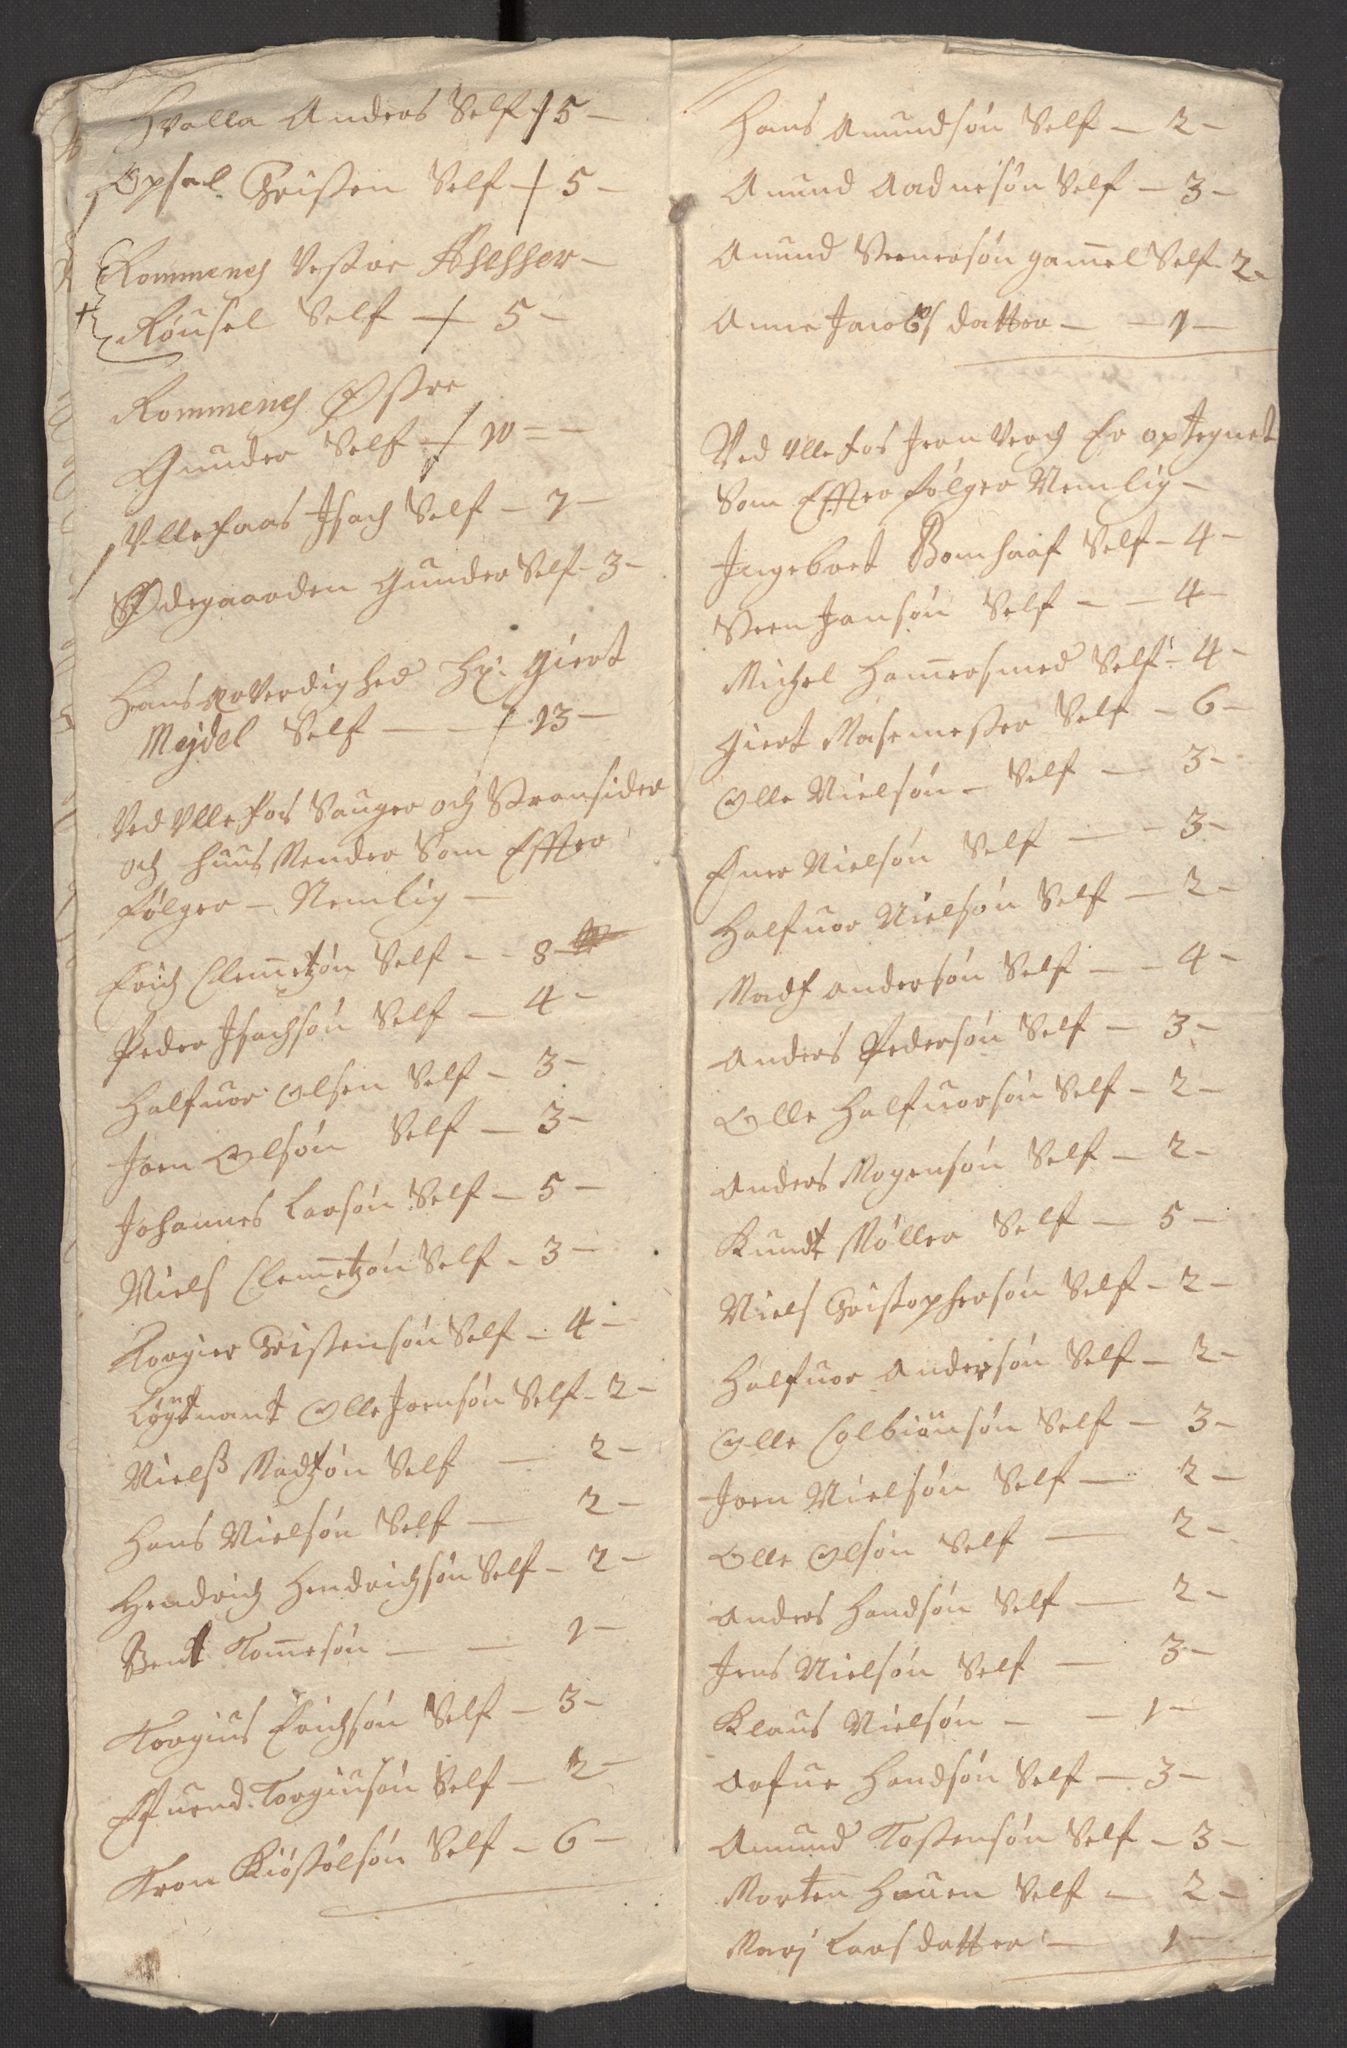 Hvalla Anders Self 5 –
Opsal Christen Self – 5 –
Rommenes Vestre Assesser –
Røusel Self – 5 –
Rommenes Østre
Gunder Self – 10 = –
Ullefaas Isach Self – 7 –
Ødegaarden Gunder Self – 3 –
Hans Erverdighed Hr: Giert
Mejdel Self – – 13 –
Ved Ullefos Sauger och Stransider
och huus Mender Som Effter
følger – Nemlig –
Erich Clemetzøn Self – – 8 –
Peder Isachsøn Self – 4 –
Halfuor Olsen Self – 3 –
Joen Olsøn Self – 3 –
Johannes Larsøn Self – 5 –
Niels Clemetzøn Self – 3 –
Torgier Christensøn Self – 4 –
Løytnant Olle Joensøn Self – 2 –
Nielß Madtzøn Self – 2 –
Hans Nielsøn Self – 2 –
Hendrich Hendrichsøn Self – 2 –
Bent Tommesøn – – 1 –
Torgius Erichsøn Self – 3 –
Efuend Torgiusøn Self – 2 –
Tron Kiøstolsøn Self – 6 –
Hans Amundsøn Self – 2 –
Amund Aadnesøn Self – 3 –
Amund Steenersøn gammel Self – 2 –
Anne Jacobs datter – – 1 –
Ved Ullefos Jern Verch Er optegnet
Som Effter følger Nemlig –
Ingebret Bomhaaf Self – 4 –
Steen Jansøn Self – – 4 –
Michel Hamersmed Self – 4 –
Giert Masemester Self – 6 –
Olle Nielsøn – Self – 3 –
Ener Nielsøn Self – – 3 –
Halfuor Nielsøn Self – 2 –
Madtz Andersøn Self – – 4 –
Anders Pedersøn Self – 3 –
Olle Halfuorsøn Self – 2 –
Anders Mogensøn Self – 2 –
Knudt Møller Self – 5 –
Niels Christophersøn Self – 2 –
Halfuor Andersøn Self – 2 –
Olle Colbiønsøn Self – 3 –
Joen Nielsøn Self – 2 –
Olle Olsøn Self – 2 –
Anders Handsøn Self – 2 –
Jens Nielsøn Self – 3 –
Klaus Nielsøn – – 1 –
Aafue Handsøn Self – 3 –
Amund Tostensøn Self – 3 –
Morten Hauen Self – 2 –
Marj Lars datter – 1 –